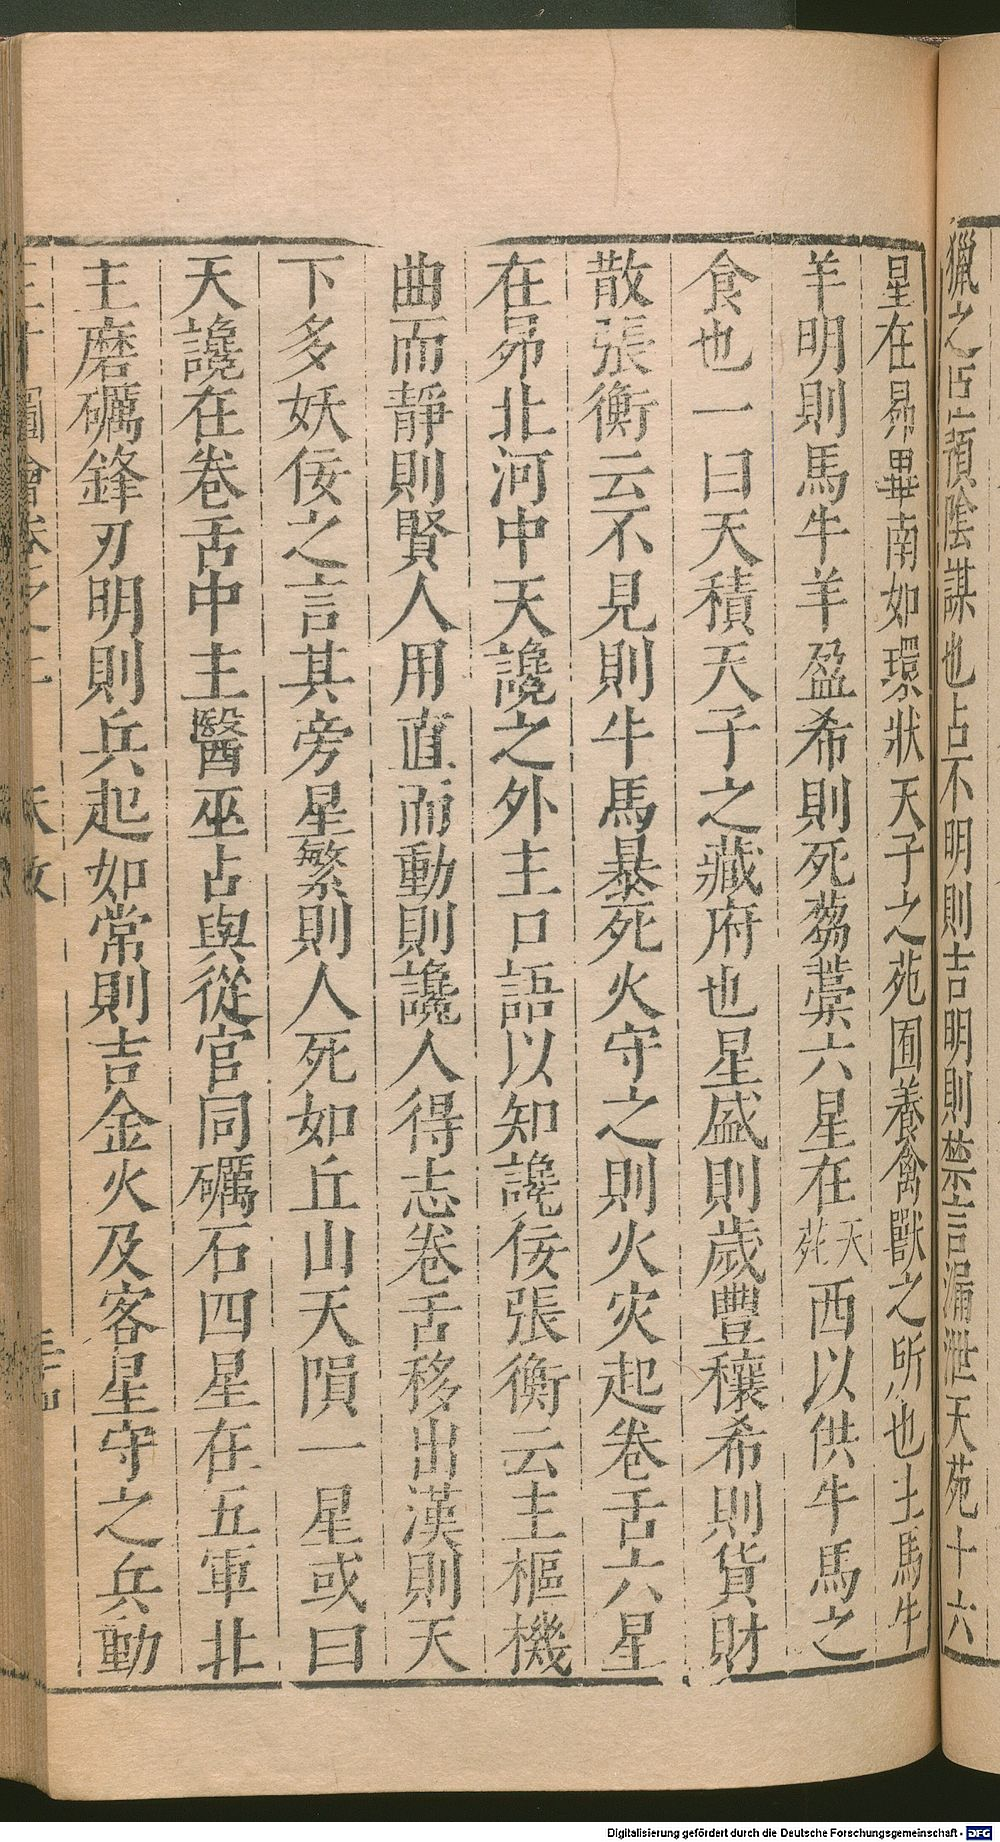 獵之占預陰謀也占不明則吉明則禁言漏泄天苑十六
星在昴畢南如環狀天子之苑囿養禽獸之所也主馬牛
羊明則馬牛羊盈希則死蒭藁六星在天苑西以供牛馬之
食也一曰天積天子之藏府也星盛則歲豐穰希則貨財
散張衡云不見則牛馬暴死火守之則火灾起卷舌六星
在昴北河中天讒之外主口語以知讒佞張衡云主樞機
曲而靜則賢人用直而動則讒人得志卷舌移出漢則天
下多妖佞之言其旁星繁則人死如丘山天隕一星或曰
天讒在卷舌中主醫巫占與從官同礪石四星在五軍北
主磨礪鋒刃明則兵起如常則吉金火及客星守之兵動
圖會 之二
Digitalisierung gefördert durch die Deutsche Forschungsgemeinschaft - DFG